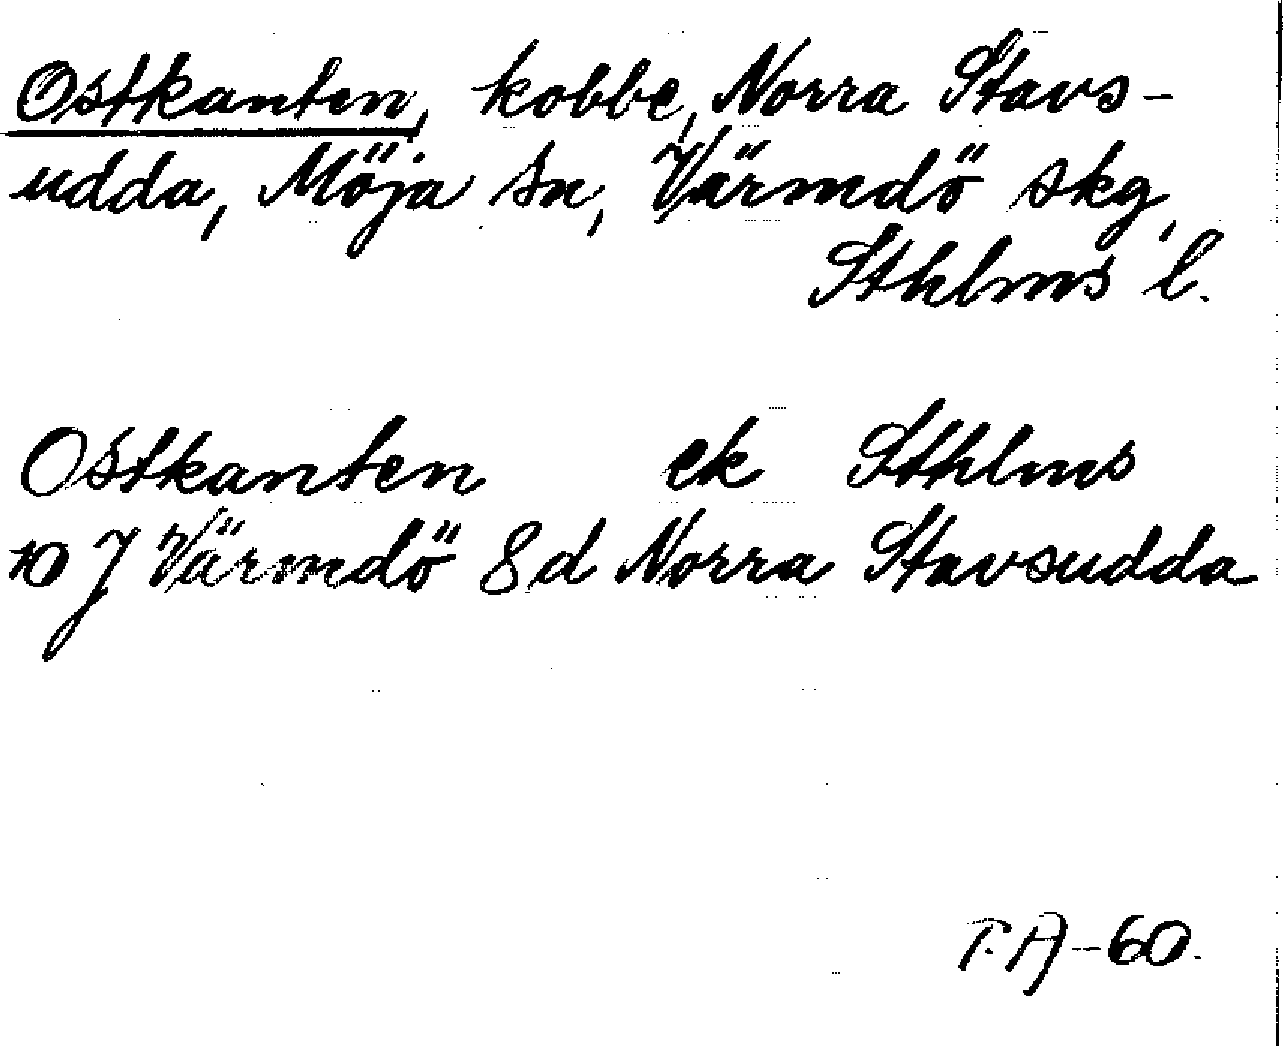 Ostkanten, kobbe, Norra Stavs-
udda, Möja sn, Värmdö skg,
Sthlms l.
Ostkanten ek Sthlms
10 J Värmdö 8d Norra Stavsudda
T.A-60.